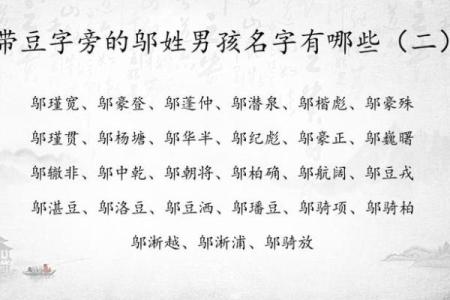 带豆字旁的邬姓男孩名字有哪些（二）
邬瑾宽、邬豪登、邬蓬仲、邬潜泉、邬楷彪、邬豪殊
邬瑾贯、邬杨塘、邬华半、邬纪彪、邬豪正、邬巍曙
邬辙非、邬中乾、邬朝将、邬柏确、邬航阔、邬豆戎
邬湛豆、邬洛豆、邬豆洒、邬璠豆、邬骑项、邬骑柏
邬渐越、邬渐浦、邬骑放